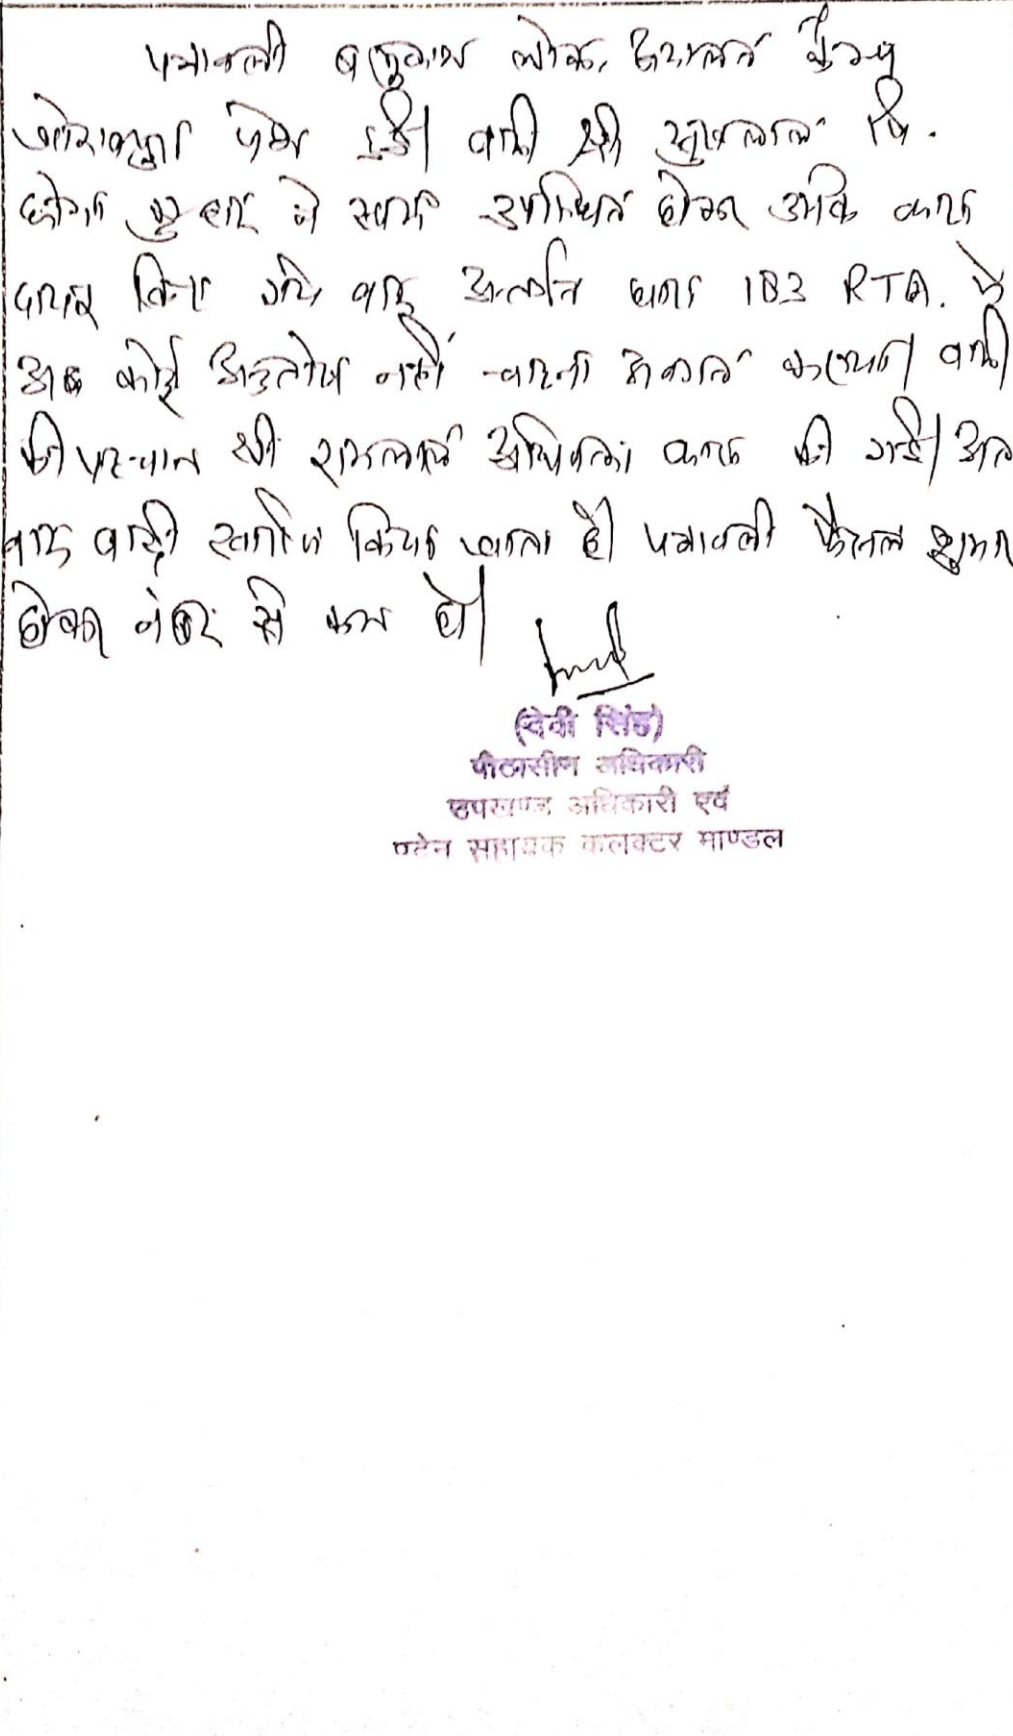 पत्रावली बमुकाम लोक अदालत कैम्प
पेश हुई। वादी श्री सुखलाल पि.
कुम्हार ने स्वयं उपस्थित होकर उनके द्वारा
दायर किए गये वाद अन्तर्गत धारा 183 RTA. में
अब कोई अनुतोष नहीं चाहना प्रकट वादी
की पहचान श्री रामलाल अधिवक्ता द्वारा की गई। अतः
वाद वादी खारीज किया जाता है। पत्रावली फैसल शुमार
होकर नंबर से कम हो।
(देवी सिंह)
पीठासीन अधिकारी
उपखण्ड अधिकारी एवं
पदेन सहायक कलक्टर माण्डल